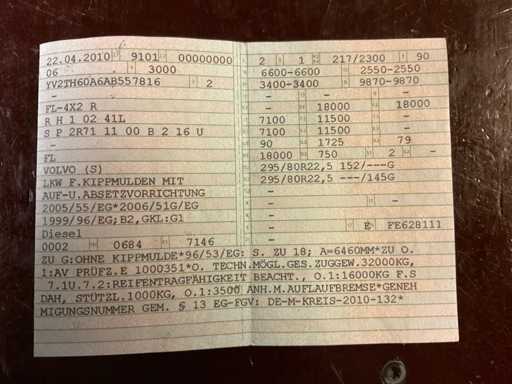 22.04.2010 9101 00000000
06 3000
YV2TH60A6AB557816 2
-
FL-4X2 R
R H 1 02 41L
S P 2R71 11 00 B 2 16 U
-
FL
VOLVO (S)
LKW F.KIPPMULDEN MIT
AUF-U.ABSETZVORRICHTUNG
2005/55/EG*2006/51G/EG
1999/96/EG;B2,GKL:G1
Diesel
0002 0684 7146
2 1 217/2300 90
6600-6600 2550-2550
3400-3400 9870-9870
- - -
- 18000 18000
7100 11500 -
7100 11500 -
90 1725 79
18000 750 2 -
295/80R22,5 152/---G
295/80R22,5 ---/145G
-
-
-
- E FE628111
ZU G:OHNE KIPPMULDE*96/53/EG: S. ZU 18; A=6460MM*ZU O.
1:AV PRÜFZ.E 1000351*O. TECHN.MÖGL.GES.ZUGGEW.32000KG,
7.1U.7.2:REIFENTRAGFÄHIGKEIT BEACHT., O.1:16000KG F.S
DAH, STÜTZL.1000KG, O.1:3500 ANH.M.AUFLAUFBREMSE*GENEH
MIGUNGSNUMMER GEM. § 13 EG-FGV: DE-M-KREIS-2010-132*